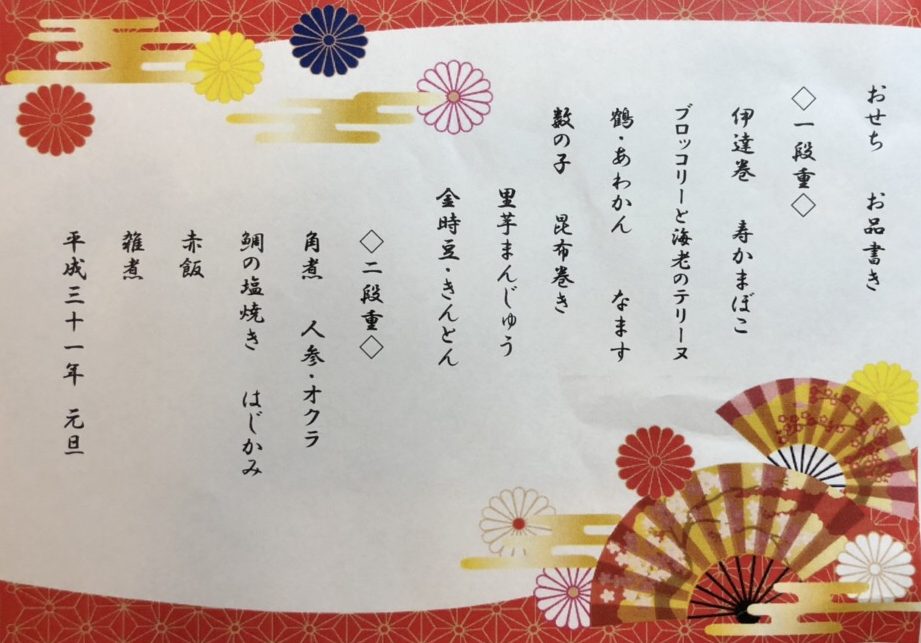 おせち　お品書き
◇一段重◇
伊達巻　寿かまぼこ
ブロッコリーと海老のテリーヌ
鶴・あわかん　なます
数の子　昆布巻き
里芋まんじゅう
金時豆・きんとん
◇二段重◇
角煮　人参・オクラ
鯛の塩焼き　はじかみ
赤飯
雑煮
平成三十一年　元旦